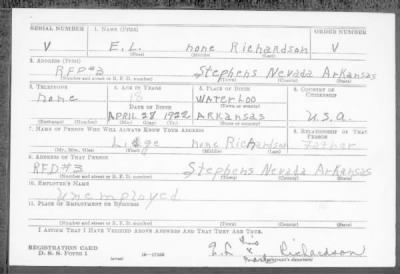 SERIAL NUMBER 1. NAME (Print) ORDER NUMBER
V E.L. none Richardson V
(First) (Middle) (Last)
2. ADDRESS (Print)
RFD#3 Stephens Nevada Arkansas
(Number and street or R. F. D. number) (Town) (County) (State)
3. TELEPHONE 4. AGE IN YEARS 5. PLACE OF BIRTH 6. COUNTRY OF CITIZENSHIP
none Waterloo
DATE OF BIRTH (Town or county)
APRIL 28 1922 ARKANSAS U.S.A.
(Mo.) (Day) (Yr.) (State or country)
7. NAME OF PERSON WHO WILL ALWAYS KNOW YOUR ADDRESS 8. RELATIONSHIP OF THAT PERSON
none Richardson Father
(Mr., Mrs., Miss) (First) (Middle) (Last)
9. ADDRESS OF THAT PERSON
RFD#3 Stephens Nevada Arkansas
(Number and street or R. F. D. number) (Town) (County) (State)
10. EMPLOYER'S NAME
Unemployed
11. PLACE OF EMPLOYMENT OR BUSINESS
(Number and street or R. F. D. number) (Town) (County) (State)
I AFFIRM THAT I HAVE VERIFIED ABOVE ANSWERS AND THAT THEY ARE TRUE.
REGISTRATION CARD
D. S. S. FORM 1
his
x Richardson
mark